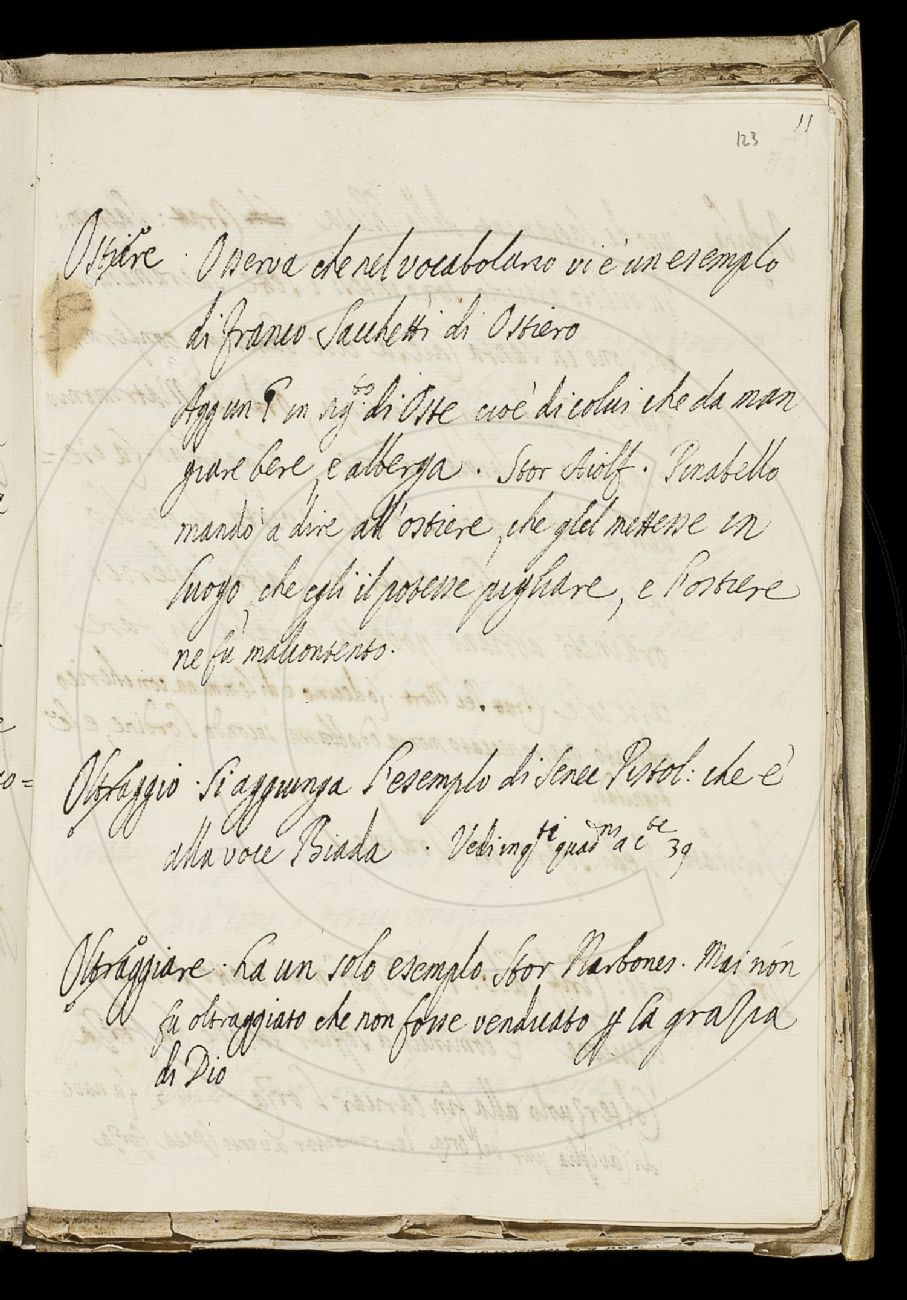 123 11
Ostiere. Osserva che nel vocabolario vi è un esempio
di Franco Sacchetti di Ostiero
Aggiun P in sig.to di Oste cioè di colui che da man
giare bere, e alberga. Stor Aiolf. Pinabello
mandò a dire all'ostiere, che gliel mettesse in
luogo, che egli il potesse pigliare, e l'ostiere
ne fù malcontento.
Oltraggio. Si aggiunga l'esempio di Senec Pistol: che è
alla voce Biada. Vedi in q.ti quad.ni a c.te 39
Oltraggiare. ha un solo esempio. Stor Narbones. Mai non
fù oltraggiato che non fosse vendicato p la grazia
di Dio